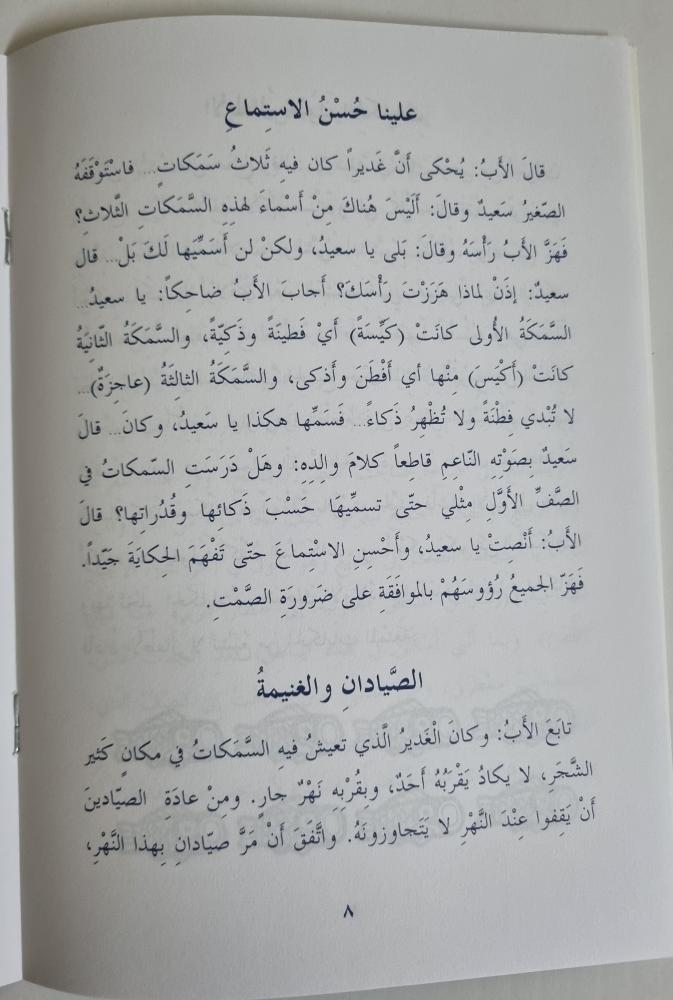 علينا حُسْنُ الاستِماعِ
قالَ الأَبُ: يُحْكى أَنَّ غَديراً كان فيهِ ثَلاثُ سَمَكاتٍ... فاسْتَوْقَفَهُ
الصّغيرُ سَعيدٌ وقالَ: أَلَيْسَ هُناكَ مِنْ أَسْماءَ لهذِهِ السَّمَكاتِ الثَّلاثِ؟
فَهَزَّ الأَبُ رَأْسَهُ وقالَ: بَلى يا سعيدُ، ولكنْ لن أُسَمِّيَها لَكَ بَلْ... قال
سعيدٌ: إذَنْ لماذا هَزَزْتَ رَأْسَكَ؟ أجابَ الأَبُ ضاحِكاً: يا سعيدُ...
السَّمَكَةُ الأُولى كانَتْ (كَيِّسَةً) أَيْ فَطينَةً وذَكِيّةً، والسَّمَكَةُ الثّانِيَةُ
كانَتْ (أَكْيَسَ) مِنْها أي أَفْطَنَ وأَذكى، والسَّمَكَةُ الثالِثَةُ (عاجِزَةٌ)...
لا تُبْدي فِطْنَةً ولا تُظْهِرُ ذَكاءً... فَسَمِّها هكذا يا سَعيدُ، وكانَ... قالَ
سَعيدٌ بِصَوْتِهِ النّاعِمِ قاطِعاً كلامَ والِدِهِ: وهَلْ دَرَسَتِ السّمكاتُ في
الصَّفِّ الأَوَّلِ مِثْلي حتّى تسمِّيهَا حَسْبَ ذَكائِها وقُدُراتِها؟ قالَ
الأَبُ: أَنْصِتْ يا سعيدُ، وأَحْسِنِ الاسْتِماعَ حتّى تَفْهَمَ الحِكايَةَ جَيّداً.
فَهَزّ الجميعُ رُؤوسَهُمْ بالموافَقَةِ على ضَرورَةِ الصَّمْتِ.
الصَّيادانِ والغنيمةُ
تابَعَ الأَبُ: وكانَ الْغَديرُ الَّذي تعيشُ فيهِ السَّمَكاتُ في مكانٍ كَثير
الشَّجَرِ، لا يكادُ يَقْرَبُهُ أَحَدٌ، وبِقُرْبِهِ نَهْرٌ جارٍ. ومِنْ عادَةِ الصيّادينَ
أَنْ يَقِفوا عِنْدَ النَّهْرِ لا يَتَجاوزونَهُ. واتَّفَقَ أَنْ مَرَّ صيّادانِ بِهذا النَّهْرِ،
٨